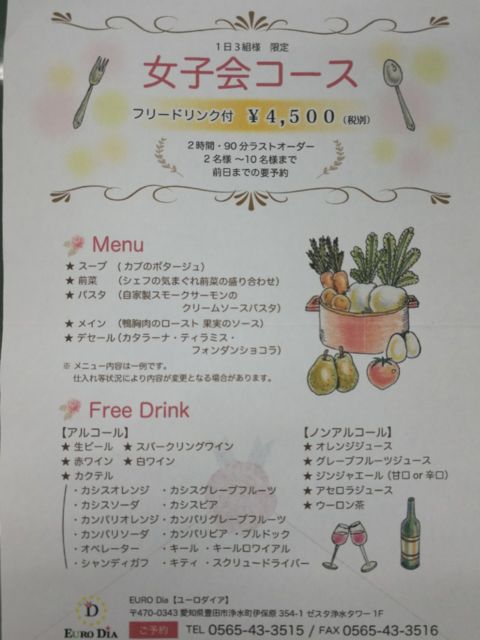 1日3組様 限定
女子会コース
フリードリンク付 ￥4,500（税別）
2時間・90分ラストオーダー
2名様 ～10名様まで
前日までの要予約
Menu
★ スープ （カブのポタージュ）
★ 前菜 （シェフの気まぐれ前菜の盛り合わせ）
★ パスタ （自家製スモークサーモンの
クリームソースパスタ）
★ メイン （鴨胸肉のロースト 果実のソース）
★ デセール（カタラーナ・ティラミス・
フォンダンショコラ）
※ メニュー内容は一例です。
仕入れ等状況により内容が変更となる場合があります。
Free Drink
【アルコール】
★ 生ビール ★ スパークリングワイン
★ 赤ワイン ★ 白ワイン
★ カクテル
・カシスオレンジ ・カシスグレープフルーツ
・カシスソーダ ・カシスビア
・カンパリオレンジ・カンパリグレープフルーツ
・カンパリソーダ ・カンパリビア ・ブルドック
・オペレーター ・キール ・キールロワイアル
・シャンディガフ ・キティ ・スクリュードライバー
【ノンアルコール】
★ オレンジジュース
★ グレープフルーツジュース
★ ジンジャエール（甘口 or 辛口）
★ アセロラジュース
★ ウーロン茶
EURO DIA
EURO Dia【ユーロディア】
〒470-0343 愛知県豊田市浄水町伊保原 354-1 ゼスタ浄水タワー 1F
ご予約 TEL 0565-43-3515 / FAX 0565-43-3516